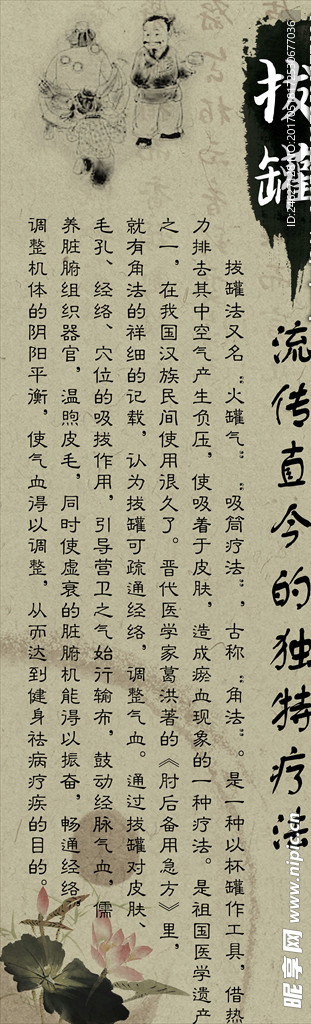 拔罐
流传直今的独特疗法
拔罐法又名“火罐气”“吸筒疗法”,古称“角法”。是一种以杯罐作工具,借热
力排去其中空气产生负压,使吸着于皮肤,造成瘀血现象的一种疗法。是祖国医学遗产
之一,在我国汉族民间使用很久了。晋代医学家葛洪著的《肘后备用急方》里,
就有角法的祥细的记载,认为拔罐可疏通经络,调整气血。通过拔罐对皮肤、
毛孔、经络、穴位的吸拔作用,引导营卫之气始行输布,鼓动经脉气血,儒
养脏腑组织器官,温煦皮毛,同时使虚衰的脏腑机能得以振奋,畅通经络,
调整机体的阴阳平衡,使气血得以调整,从而达到健身祛病疗疾的目的。
昵享网 www.nipic.cn